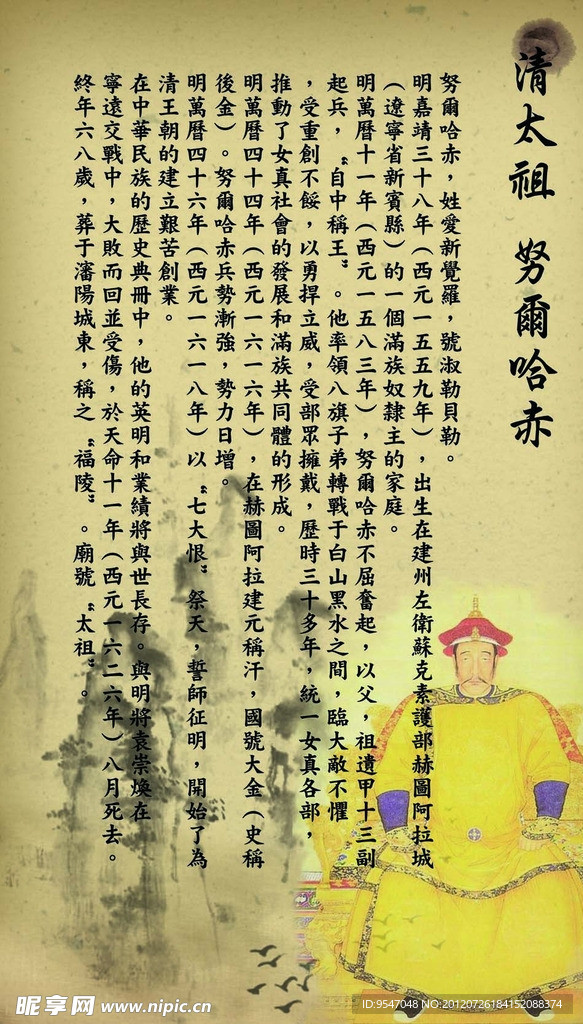 清太祖 努爾哈赤
努爾哈赤，姓愛新覺羅，號淑勒貝勒。
明嘉靖三十八年（西元一五五九年），出生在建州左衛蘇克素護部赫圖阿拉城
（遼寧省新賓縣）的一個滿族奴隸主的家庭。
明萬曆十一年（西元一五八三年），努爾哈赤不屈奮起，以父，祖遺甲十三副
起兵，“自中稱王”。他率領八旗子弟轉戰于白山黑水之間，臨大敵不懼
，受重創不餒，以勇捍立威，受部眾擁戴，歷時三十多年，統一女真各部，
推動了女真社會的發展和滿族共同體的形成。
明萬曆四十四年（西元一六一六年），在赫圖阿拉建元稱汗，國號大金（史稱
後金）。努爾哈赤兵勢漸強，勢力日增。
明萬曆四十六年（西元一六一八年）以“七大恨”祭天，誓師征明，開始了為
清王朝的建立艱苦創業。
在中華民族的歷史典冊中，他的英明和業績將與世長存。與明將袁崇煥在
寧遠交戰中，大敗而回並受傷，於天命十一年（西元一六二六年）八月死去。
終年六八歲，葬于瀋陽城東，稱之“福陵”。廟號“太祖”。
昵享网 www.nipic.cn
ID:9547048 NO:20120726184152088374